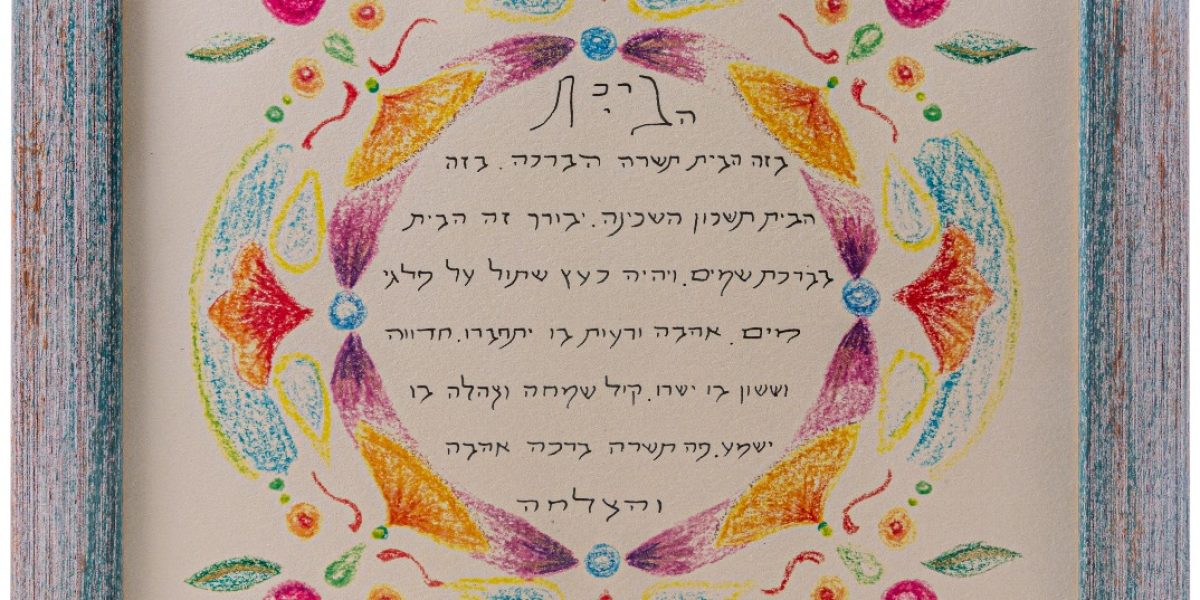 ברכת
הבית
בזה הבית תשרה הברכה. בזה
הבית תשכון השכינה. יבורך זה הבית
בברכת שמים. ויהיה כעץ שתול על פלגי
מים. אהבה ורעות בו יתחברו. חדווה
וששון בו ישרו. קול שמחה וצהלה בו
ישמע. פה תשרה ברכה אהבה
והצלחה